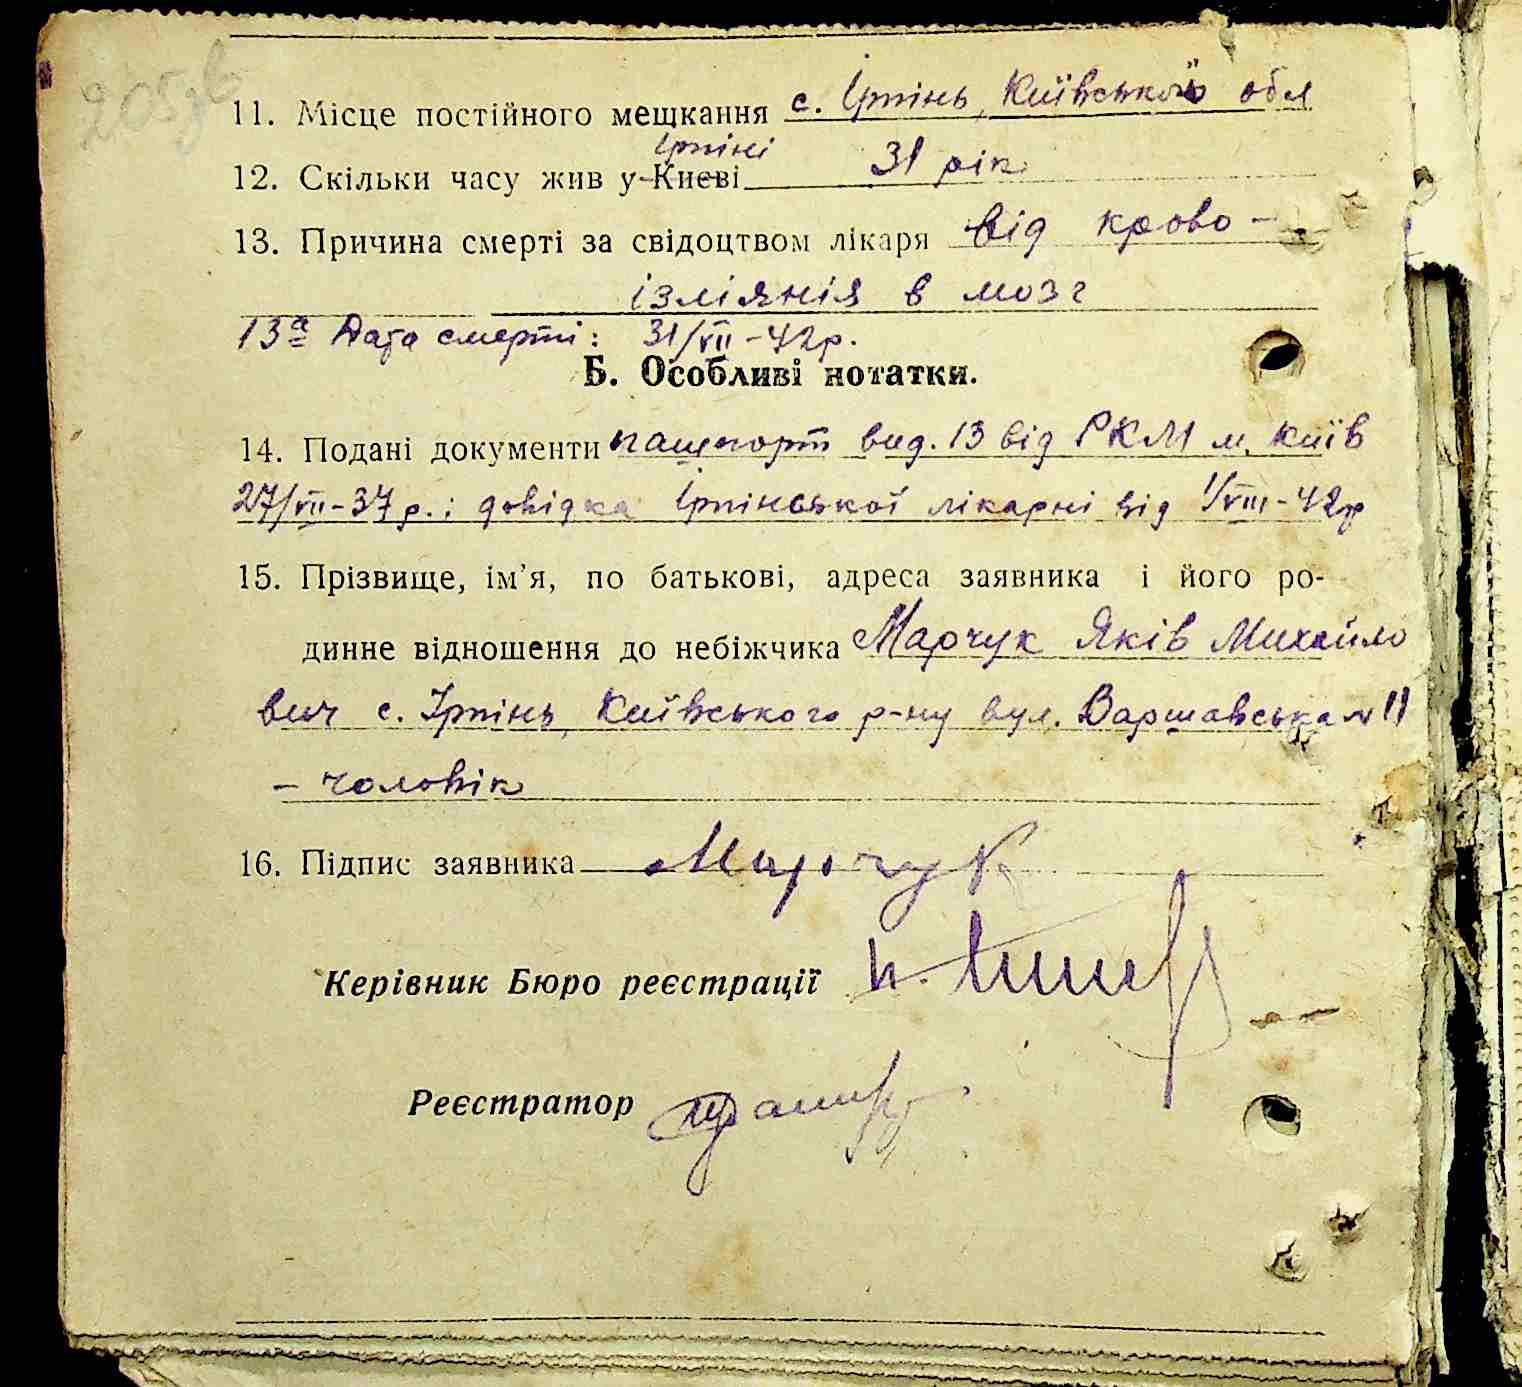 205зв
11. Місце постійного мешкання с. Ірпінь, Київської обл
Ірпіні
12. Скільки часу жив у Києві 31 рік
13. Причина смерті за свідоцтвом лікаря від крово-
ізліянія в мозг
13а Дата смерті: 31/VII-42р.
Б. Особливі нотатки.
14. Подані документи пашпорт вид. 13 від РКМ м. Київ
27/VII-37 р.; довідка Ірпінської лікарні від 1/VIII-42р
15. Прізвище, ім'я, по батькові, адреса заявника і його ро-
динне відношення до небіжчика Марчук Яків Михайло
вич с. Ірпінь, Київського р-ну вул. Варшавська № 11
- чоловік
16. Підпис заявника Марчук
Керівник Бюро реєстрації
Реєстратор